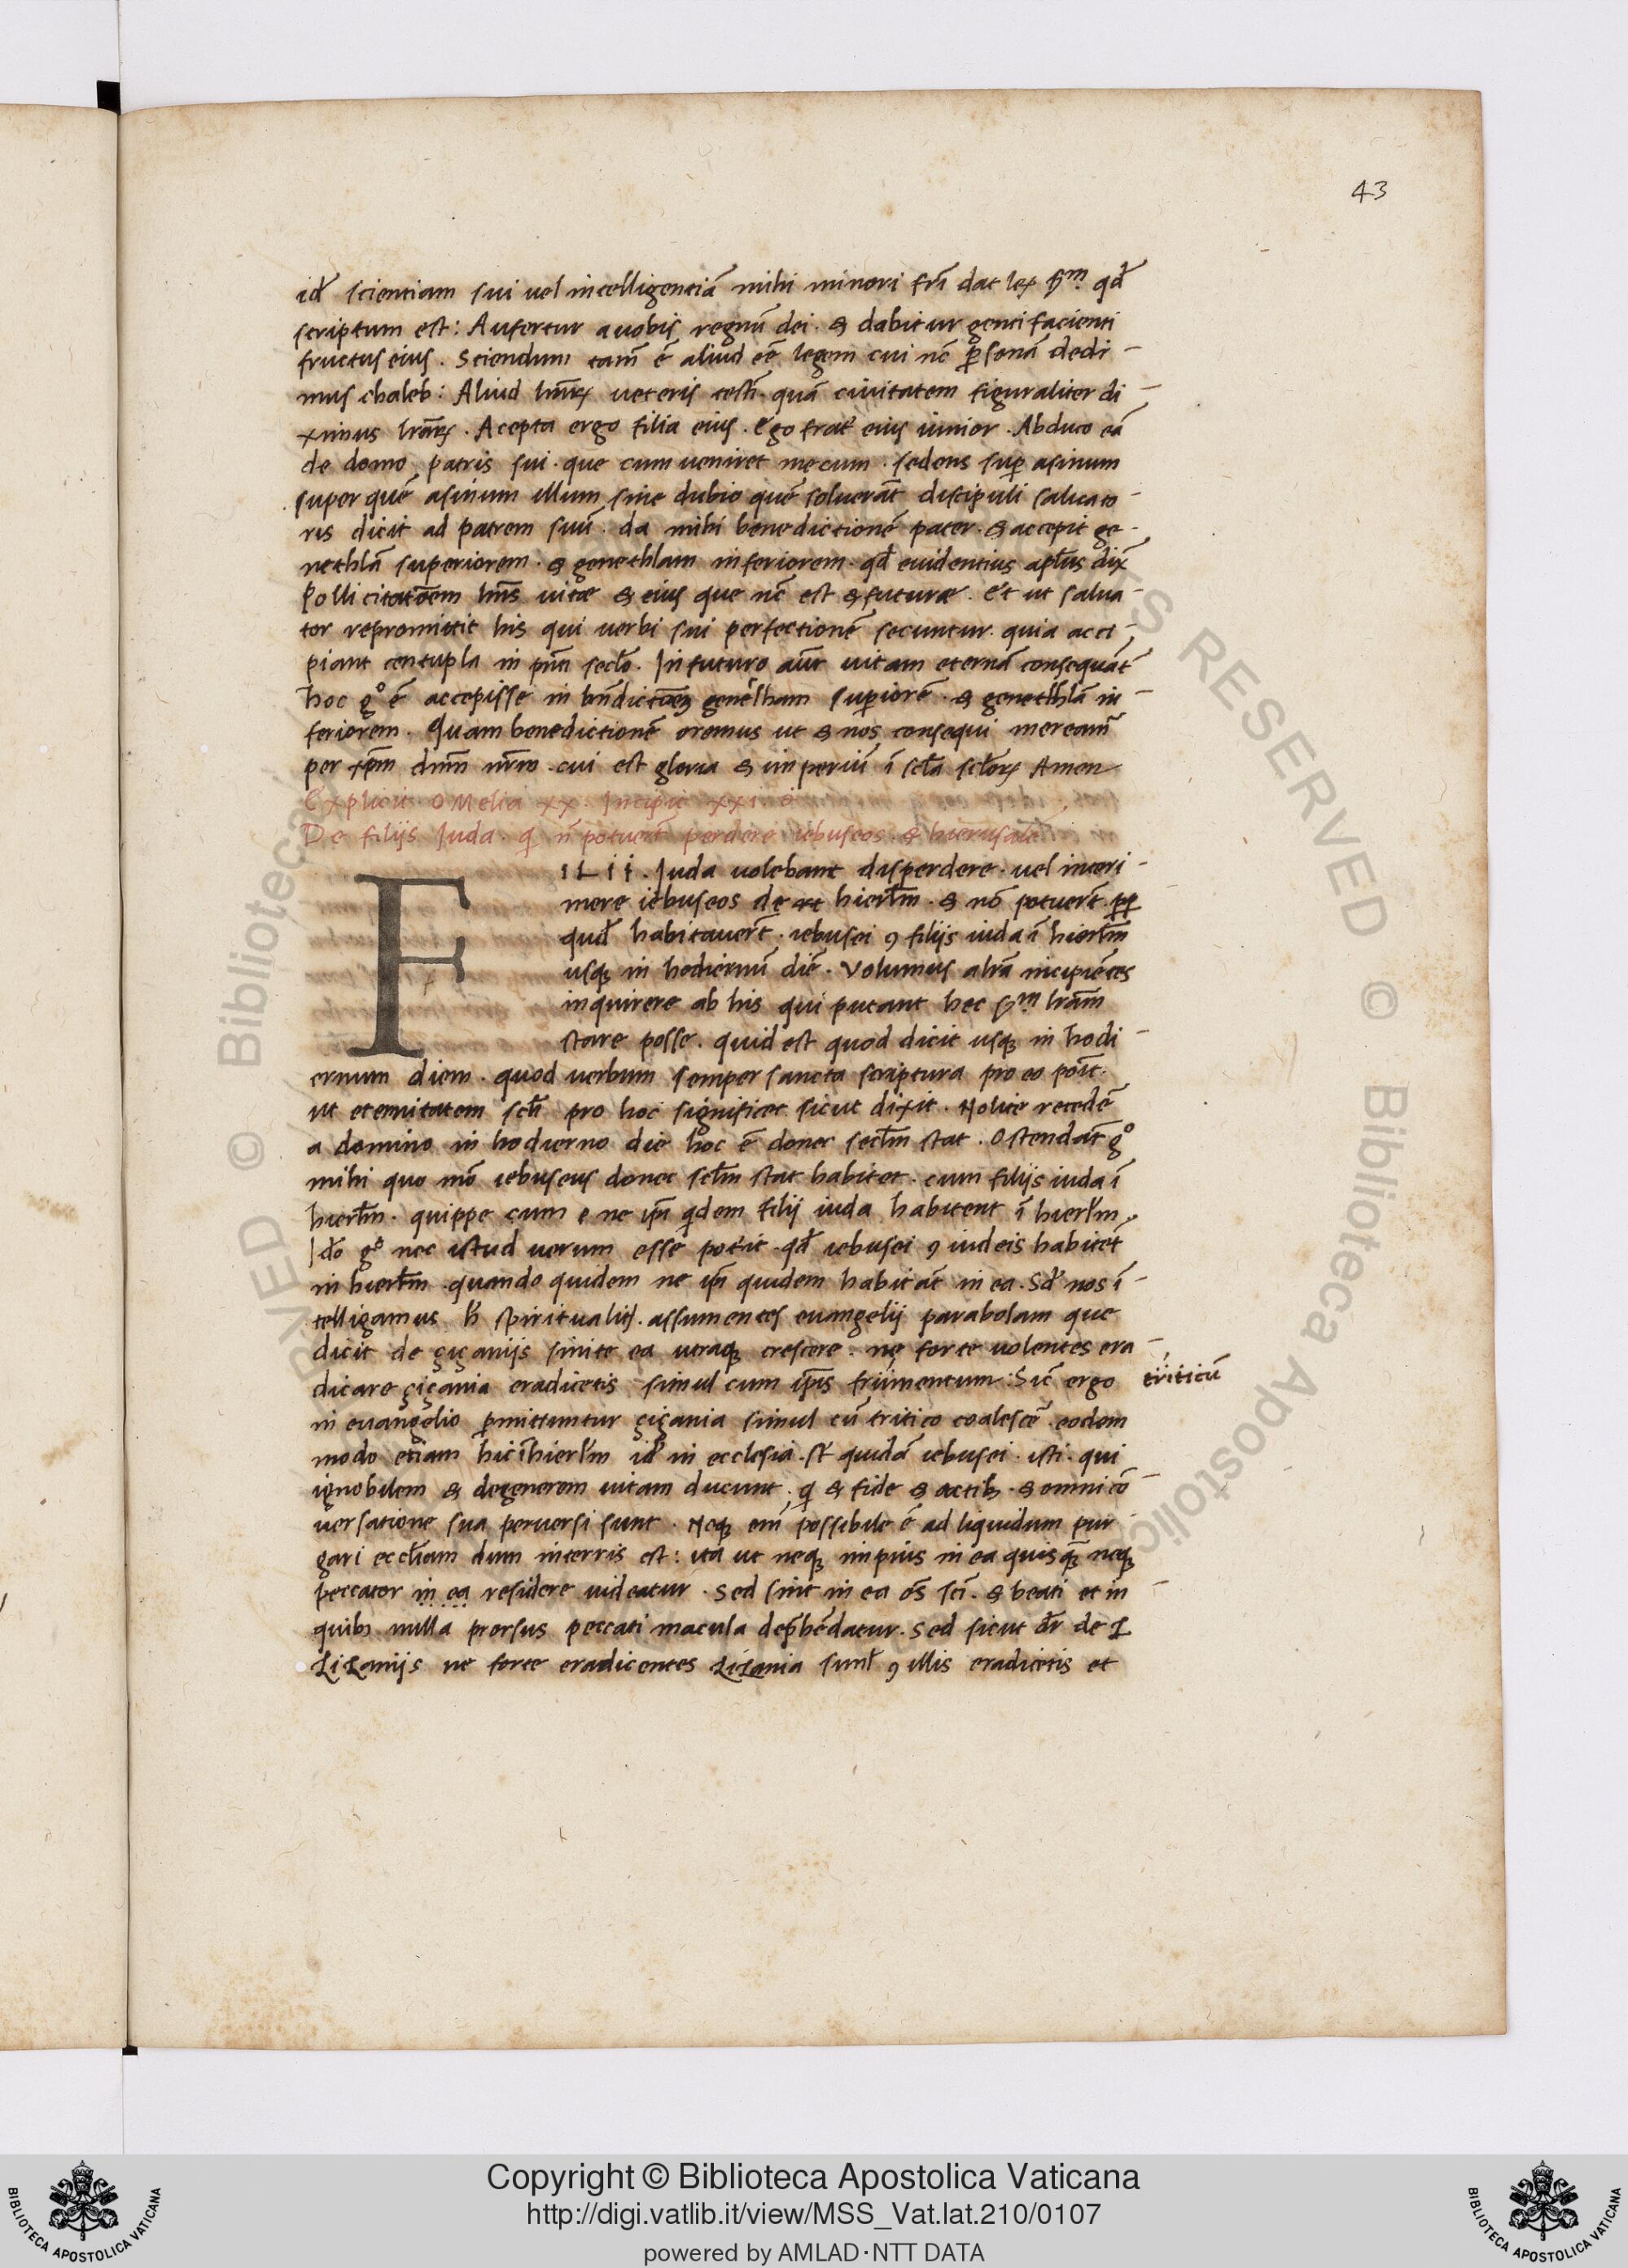 43
id̄ scientiam sui uel intelligentiā mihi minori fr̄i dat lex s̄m qd̄
scriptum est: Aufertur auobis regnū dei. & dabitur genti facienti
fructus eius. Sciendum tam̄ ē aliud eē legem cui nc̄ p̱sonā dedi-
mus chaleb: Aliud veteris quā ciuitatem figuraliter di-
ximus. Acepta ergo filia eius. Ego frat̄ eius iunior. Abduco eā
de domo patris sui. que cum ueniret mecum. sedens sup̱ asinum
super quē asinum illum sine dubio quē soluerāt discipuli saluato-
ris dicit ad patrem suū. da mihi benedictionē pater. & accepit ge-
nethlā superiorem. & genethlam inferiorem. qd̄ euidentius apl̄us dix̄
Pollicitatōem uitæ & eius que nc̄ est & futuræ. Et ut salua-
tor repromittit his qui uerbi sui perfectionē secuntur. quia acci-
piant centupla in pn̄ti secl̄o. In futuro aūt uitam eternā consequāt̄
hoc gͦ ē accepisse in bn̄dictōem genethlam sup̱iorē. & genethlā in-
feriorem. Quam benedictionē oremus ut & nos consequi mereamr̄
per xp̄m dn̄m nr̄m. cui est gloria & imperiū ī scl̄a scl̄oꝝ Amen
Explicit OMelia xx. Incipit xxi.
De filijs Iuda. q̄ n̄ potuert̄ perdere iebuseos. & hierusalē
F ILII. Iuda uolebant disperdere. uel interi-
mere iebuseos de hierl̄m. & nō potuert̄ pp̱
qud̄ habitauert̄. iebusei ꝯ filijs iuda ī hierl̄m
usqꝫ in hodiernū diē. Volumus incipiētes
inquirere ab his qui putant hec s̄m lr̄am
stare posse. quid est quod dicit usqꝫ in hodi-
ernum diem. quod uerbum semper sancta scriptura pro eo poīt.
ut eternitatem scl̄i pro hoc significet sicut dixit. Nolite recedē
a domino in hodierno die hoc ē donec secl̄m stat. Ostendāt gͦ
mihi quo mō iebuseus donec scl̄m stat habitet. cum filijs iuda ī
hierl̄m. quippe cum ne ip̄i qdem filij iuda habitent ī hierl̄m.
Idō gͦ nec istud uerum esse pot̄it. qd̄ iebusei ꝯ iudeis habitēt
in hierl̄m. quando quidem ne ip̄i quidem habitāt in ea. Sd̄ nos ī-
telligamus h̄ spiritualit̄. assumentes euangelij parabolam que
dicit de çiçanijs sinite ea utraqꝫ crescere. ne forte uolentes era-
dicare çiçania eradicetis simul cum ip̄is frumentum: Sic̄ ergo
triticū
in euangelio p̱mittuntur çiçania simul cū tritico coalescē. eodem
modo etiam hic ī hierl̄m id̄ in ecclesia. st̄ quidā iebusei. isti. qui
ignobilem & degenerem uitam ducunt. q̄ & fide & actibꝫ. & omni cō-
uersatione sua peruersi sunt. Neqꝫ eni̅ possibile ē ad liquidum pur-
gari eccl̄iam dum interris est: ita ut neqꝫ impius in ea quisqꝫ̄ neqꝫ
peccator in ea residere uideatur. Sed sint in ea ōs sc̄i. & beati et in-
quibꝫ nulla prorsus peccati macula depr̄hēdatur. Sed sicut dr̄ de Z
ZiZanijs ne forte eradicentes ZiZania siml̄ ꝯ illis eradicetis et
BIBLIOTECA APOSTOLICA VATICANA
Copyright © Biblioteca Apostolica Vaticana
http://digi.vatlib.it/view/MSS_Vat.lat.210/0107
powered by AMLAD·NTT DATA
BIBLIOTECA APOSTOLICA VATICANA